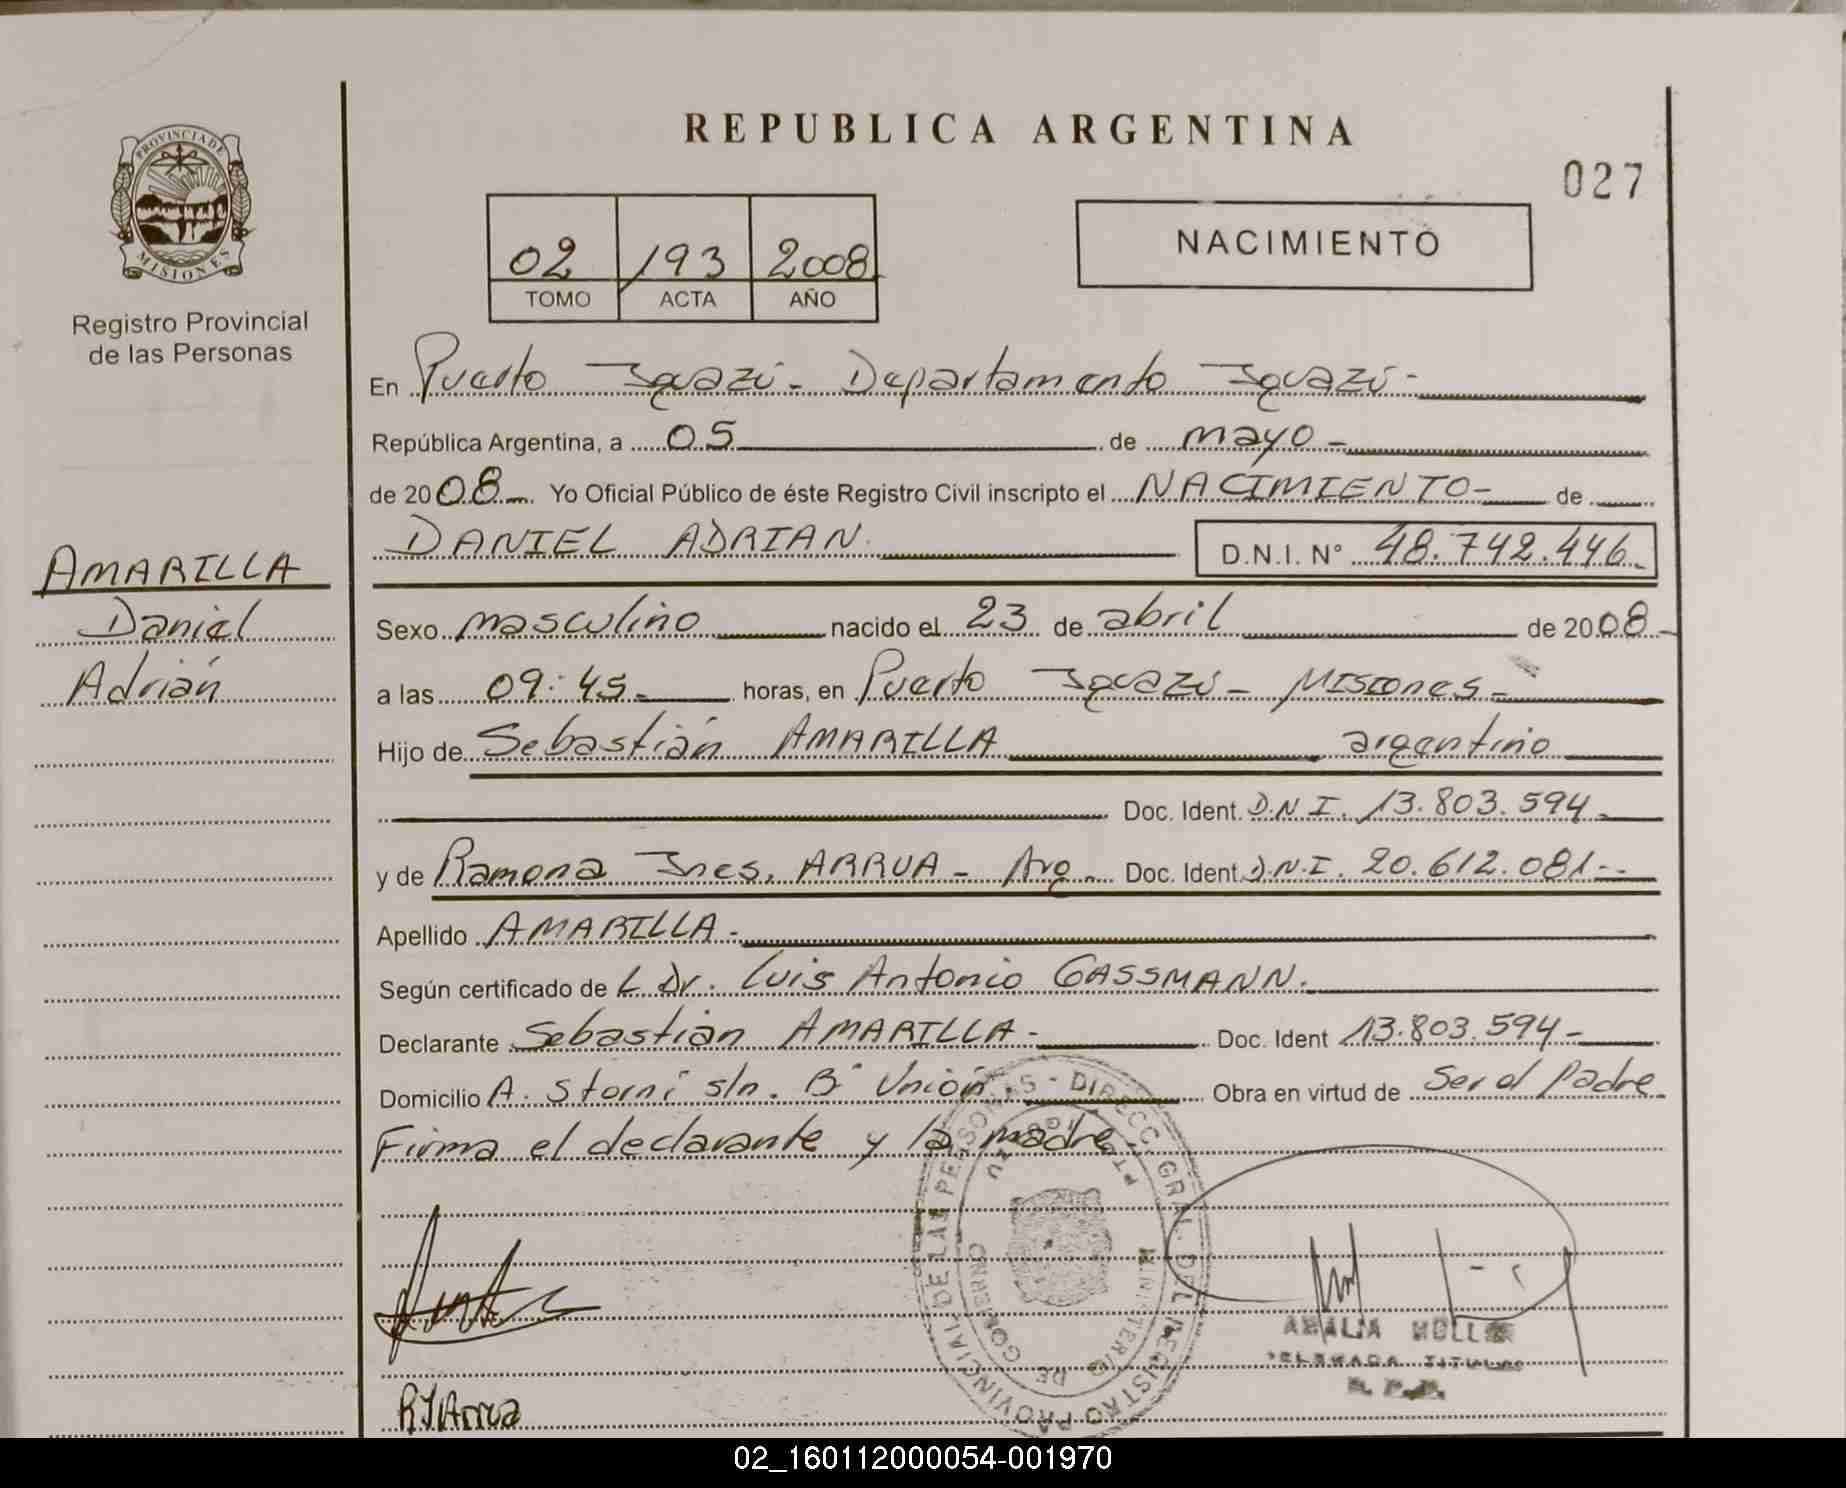 REPUBLICA ARGENTINA
027
PROVINCIA DE MISIONES
Registro Provincial
de las Personas
02 193 2008
TOMO ACTA AÑO
NACIMIENTO
En Puerto Iguazú - Departamento Iguazú -
República Argentina, a 05 de mayo -
de 2008 Yo Oficial Público de éste Registro Civil inscripto el NACIMIENTO - de
DANIEL ADRIAN. D.N.I. N° 48.742.446.
AMARILLA
Daniel
Adrián
Sexo masculino nacido el 23 de abril de 2008 -
a las 09:45 horas, en Puerto Iguazú - Misiones -
Hijo de Sebastián AMARILLA argentino
Doc. Ident. D.N.I. 13.803.594
y de Ramona Ines. ARRUA - Arg. Doc. Ident. D.N.I. 20.612.081 -
Apellido AMARILLA -
Según certificado de L Dr. Luis Antonio GASSMANN.
Declarante Sebastián AMARILLA - Doc. Ident 13.803.594 -
Domicilio A. Storni s/n. B° Unión Obra en virtud de Ser el Padre
Firma el declarante y la madre
REGISTRO PROVINCIAL DE LAS PERSONAS - DIRECC. GRAL. DEL
MINISTERIO DE GOBIERNO
PTO. IGUAZU
AMALIA
DELEGADA TITULAR
R. P. P.
RIArrua
02_160112000054-001970